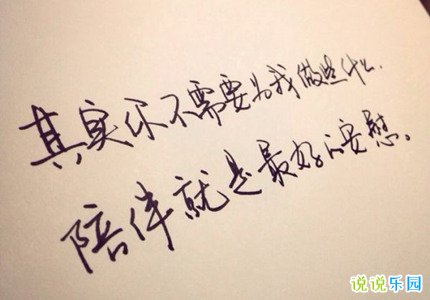 其实你不需要为我做些什么.
陪伴就是最好的安慰。
说说乐园